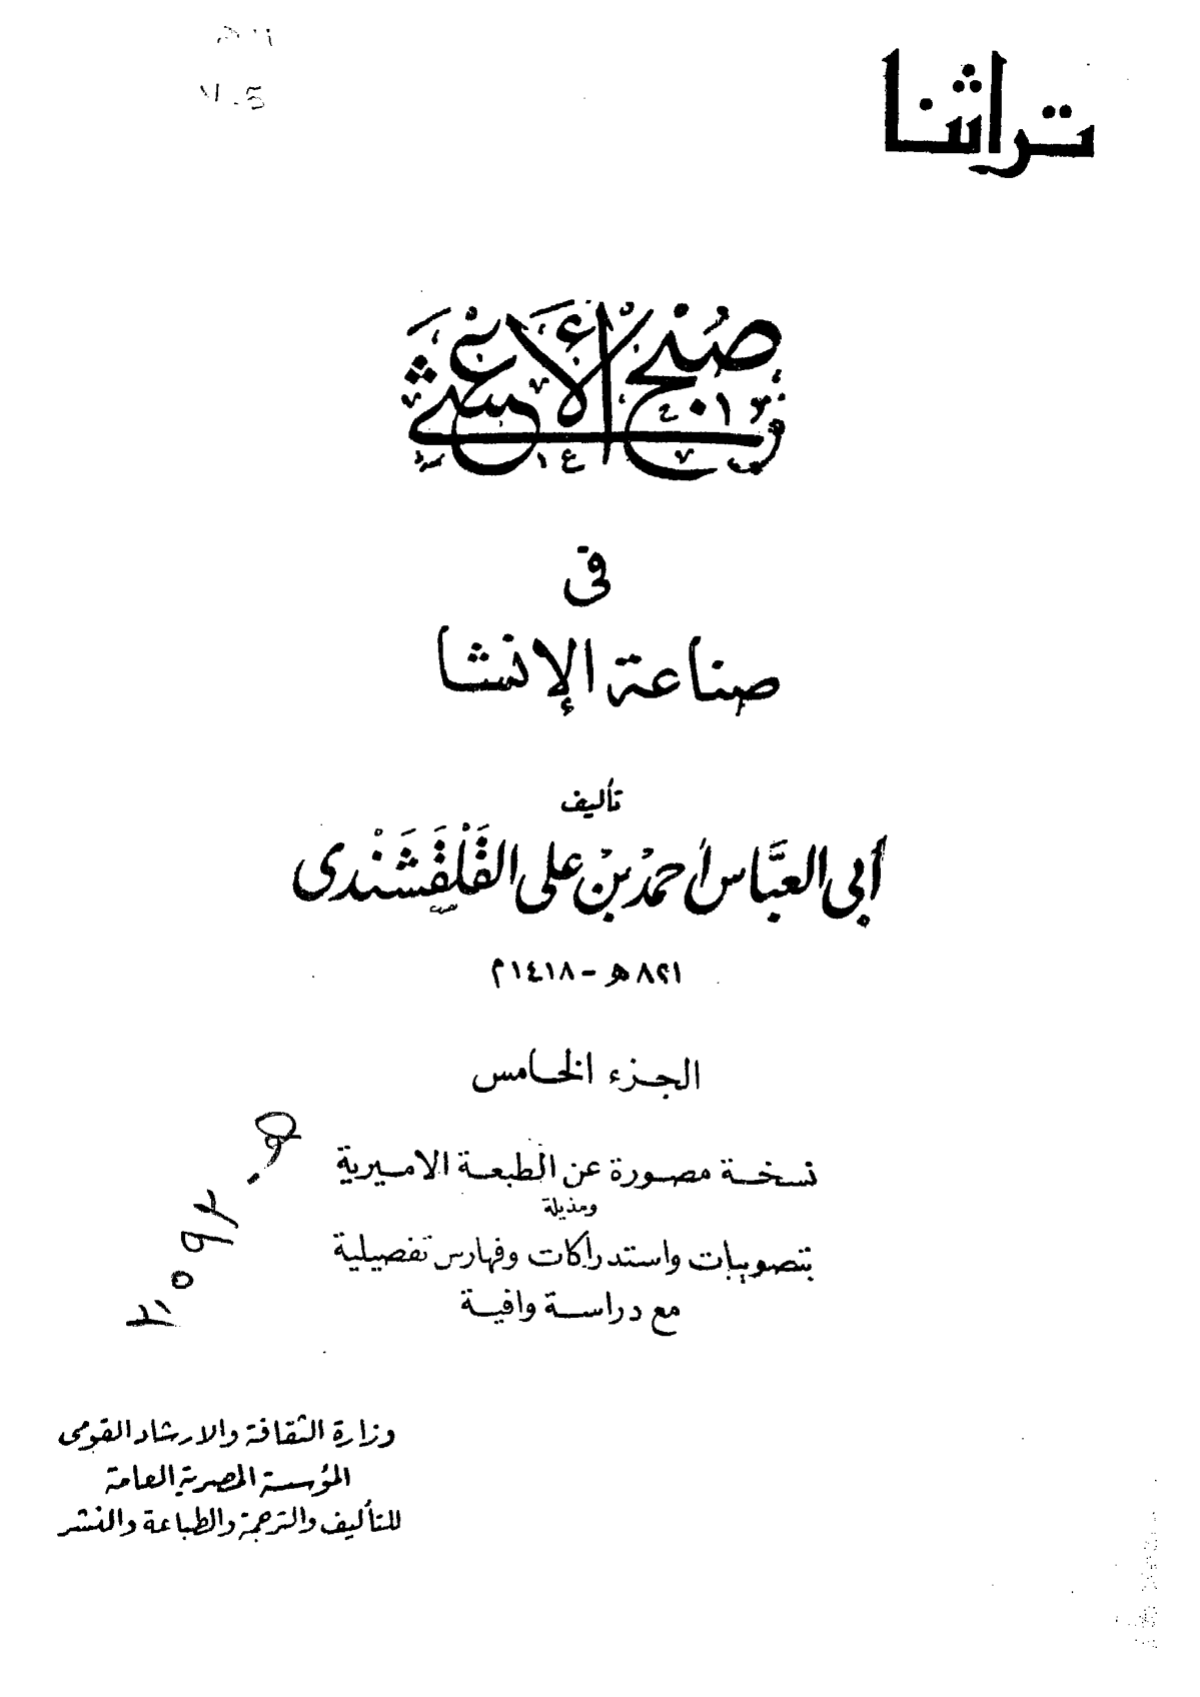 تراثنا
صُبْحُ الأَعْشَىٰ
فى
صناعة الإنشا
تأليف
أبي العبَّاس أحمدْ بْن على القَلْقَشَنْدى
٨٢١هـ - ١٤١٨م
الجزء الخامس
نسخة مصورة عن الطبعة الاميرية
ومذيلة
بتصويبات واستدراكات وفهارس تفصيلية
مع دراسة وافية
وزارة الثقافة والارشاد القومى
المؤسسة المصرية العامة
للتأليف والترجمة والطباعة والنشر
V.5